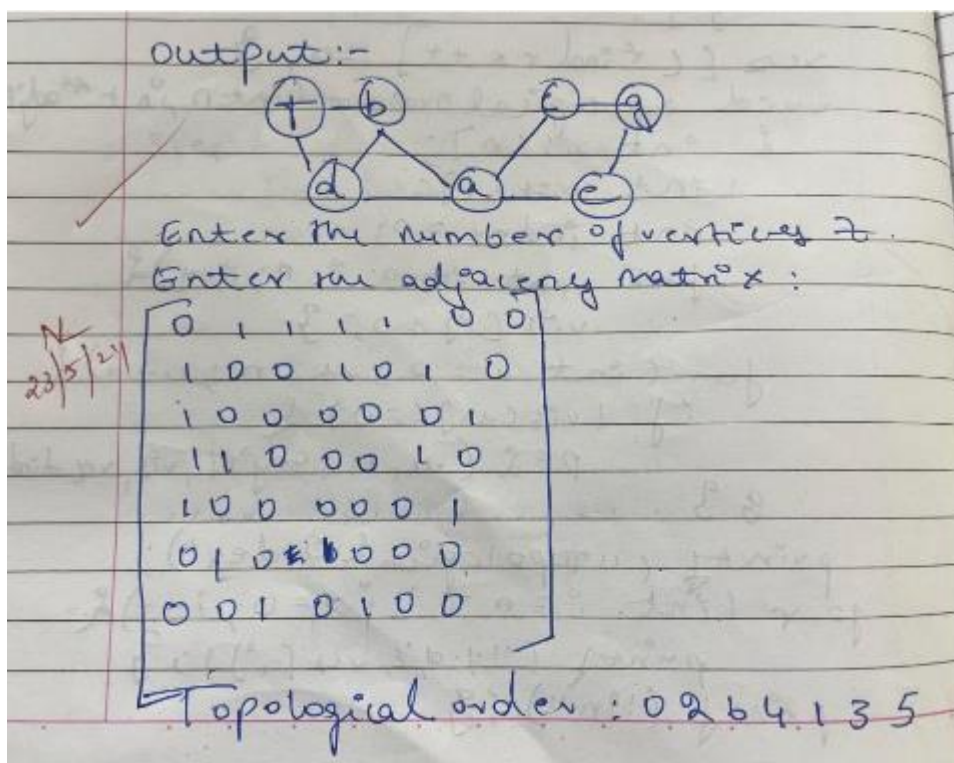 Output:-
f b c g
d a e
Enter the number of vertices 7.
Enter the adjacency matrix:
0 1 1 1 1 0 0
1 0 0 1 0 1 0
1 0 0 0 0 0 1
1 1 0 0 0 1 0
1 0 0 0 0 0 1
0 1 0 1 0 0 0
0 0 1 0 1 0 0
23/5/24
Topological order: 0 2 6 4 1 3 5